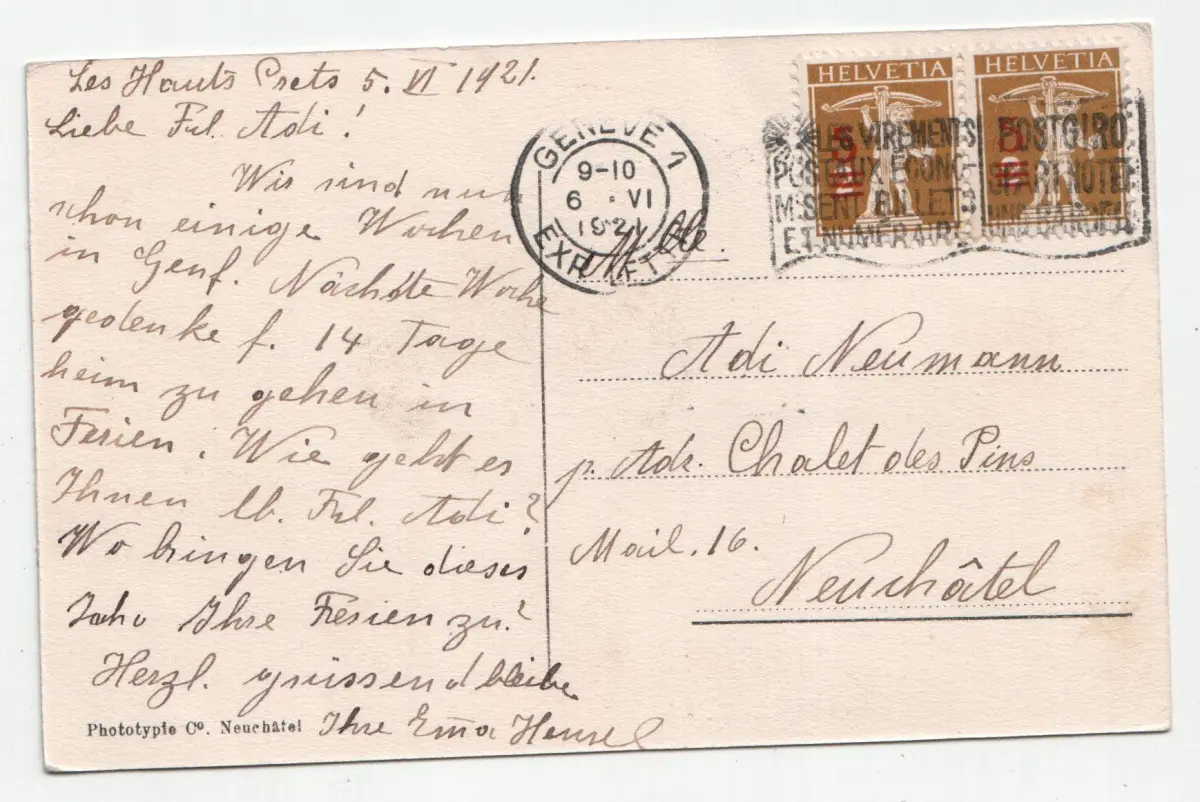 Les Hauts Crets 5. VI 1921.
Liebe Frl. Adi!
Wir sind nun
schon einige Wochen
in Genf. Nächste Woche
gedenke f. 14 Tage
heim zu gehen in
Ferien. Wie geht es
Ihnen lb. Frl. Adi?
Wo bringen Sie dieses
Jahr Ihre Ferien zu?
Herzl. grüssend bleibe
Ihre Ema Hensel
Phototypie Co. Neuchâtel
GENÈVE 1
9-10
6 . VI
1921
EXP. LETT.
HELVETIA
HELVETIA
5
5
LES VIREMENTS POSTGIRO
POSTAUX ECONO- SPART NOTEN
MISENT BILLETS UND
ET NUMERAIRE
Mlle.
Adi Neumann
p. Adr. Chalet des Pins
Mail. 16.
Neuchâtel